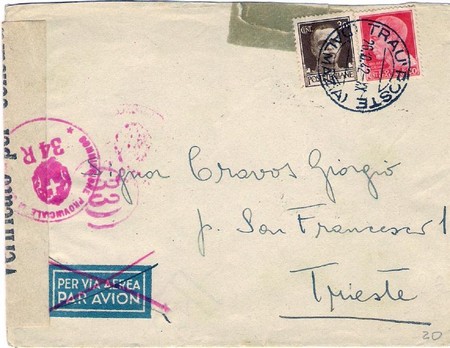 Verificato per censura
TRAU' POSTE
(DALMAZIA)
COMMISSIONE PROVINCIALE
34R
33
Signor Cravos Giorgio
p. San Francesco 1
Trieste
PER VIA AEREA
PAR AVION
20